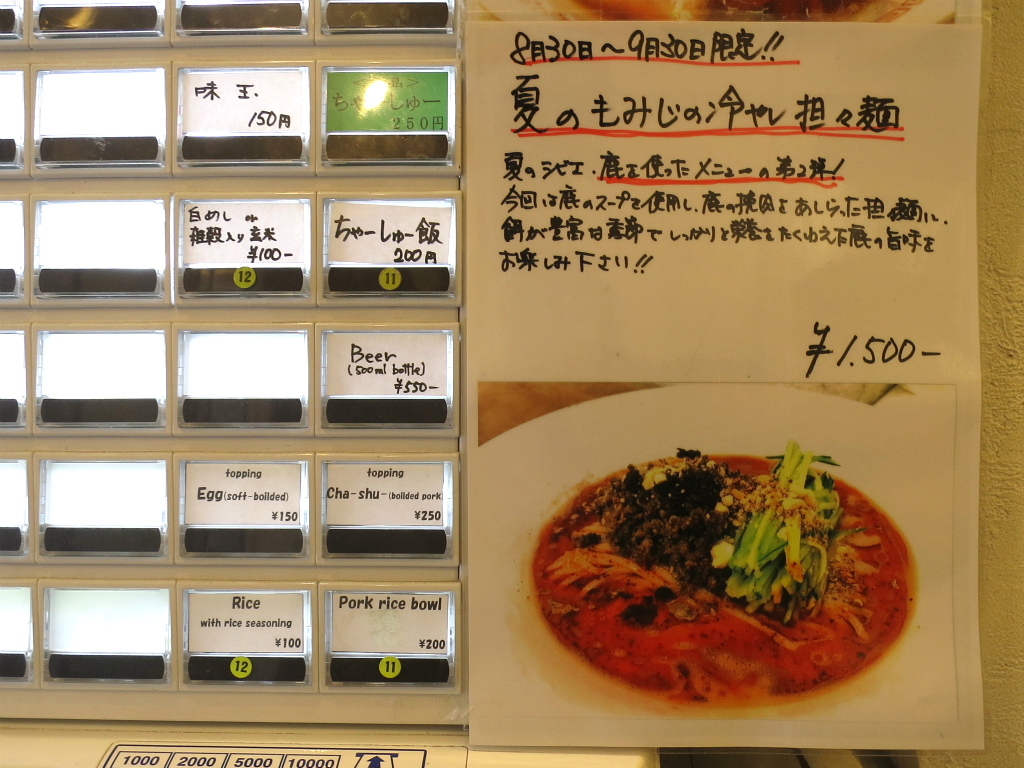 味玉.
150円
ちゃーしゅー
250円
白めし or
雑穀入り玄米
¥100-
12
ちゃーしゅー飯
200円
11
Beer
(500ml bottle)
¥550-
topping
Egg(soft-boilded)
¥150
topping
Cha-shu-(boilded pork)
¥250
Rice
with rice seasoning
¥100
12
Pork rice bowl
¥200
11
1000 2000 5000 10000
8月30日〜9月30日限定!!
夏のもみじの冷やし担々麺
夏のジビエ、鹿を使ったメニューの第2弾!
今回は鹿のスープを使用し、鹿の挽肉をあしらった担々麺に、
餌が豊富な季節でしっかりと栄養をたくわえた鹿の旨味を
お楽しみ下さい!!
¥1.500-